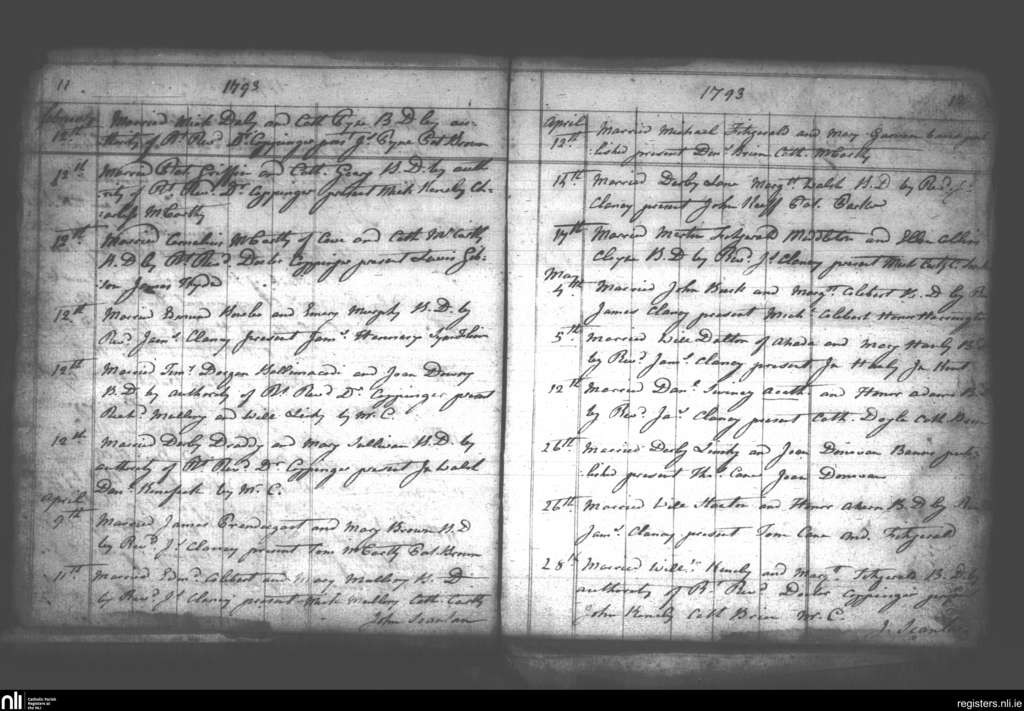 11 1793
February 12th Married Mich Daly and Cath Pyne B.D by au-
thority of Rt Revd Dr Coppinger pres Js Pyne Cat Brown
12th Married Pat. Griffin and Cath. Geary B.D. by auth
ority of Rt Revd Dr Coppinger present Mich Kenely Ch-
arles McCarthy
12th Married Cornelius McCarthy of Cove and Cath McCarthy
B.D by Rt Revd Doctr Coppinger present Lewis Gib-
son James Hyde
12th Married and Murphy B.D. by
Revd Jams Clancy present Jams
12th Married Timy Dorgan and Joan
B.D by authority of Rt Revd Dr Coppinger present
Mallery and Will by W. C.
12th Married Derby Draddy and Mary Sullivan B.D. by
authority of Rt Revd Dr Coppinger present Jn Walsh
Danl by W. C.
April
9th Married James Prendergast and Mary Brown B.D
by Revd Js Clancy present Tom McCarthy Cat Brown
11th Married Edmd Colbert and Mary Mallery B. D
by Revd Js Clancy present Mich Mallery Cath Carthy
John Scanlan
1793 12
April
12th Married Michael Fitzgerald and Mary banns pub
lished present Dens Brien Cath. McCarthy
14th Married Derby Lane Margtt Walsh B.D by Revd Js
Clancy present John Keeff Pat.
17th Married Martin Fitzgerald Middleton and Ellen Collins
Cloyne B.D by Revd Js Clancy present Mich
May
4th Married John Buck and Margtt Colbert B.D by Re
James Clancy present Michl Colbert Honor Harrington
5th Married Will Dalton of Ahada and Mary Hanly B.D
by Revd Jams Clancy present Jn Hanly Jn Hunt
12th Married Danl Swiney and Honor B.D
by Revd Jas Clancy present Cath Doyle Cath Brien
26th Married Derby and Joan Donovan Banns pub-
lished present Ths Cane Joan Donovan
26th Married Will and Honor Ahern B.D by Rev
Jams Clancy present Tom Cane Fitzgerald
28th Married Willm Kenely and Margtt Fitzgerald B.D by
authority of Rt Revd Doctr Coppinger present
John Kenely Cath Brien W. C.
J. Scanlan
nli Catholic Parish
Registers at
the NLI
registers.nli.ie